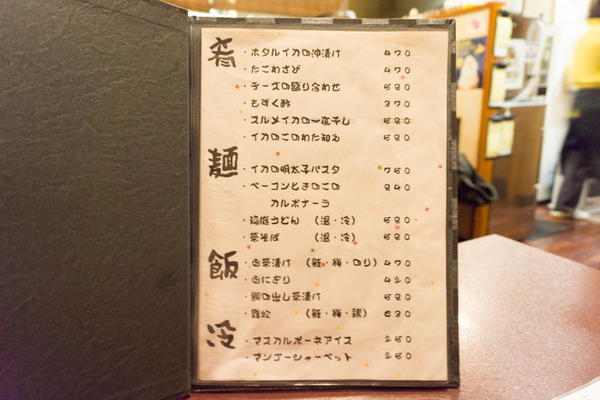 肴
・ホタルイカの沖漬け 470
・たこわさび 470
・チーズの盛り合わせ 580
・もずく酢 370
・スルメイカの一夜干し 580
・イカのこのわた和え 580
麺
・イカの明太子パスタ 750
・ベーコンときのこの 840
カルボナーラ
・稲庭うどん （温・冷） 580
・茶そば （温・冷） 580
飯
・お茶漬け （鮭・梅・のり） 470
・おにぎり 420
・鯛の出し茶漬け 580
・雑炊 （鮭・梅・鶏） 630
冷
・マスカルポーネアイス 250
・マンゴーシャーベット 250